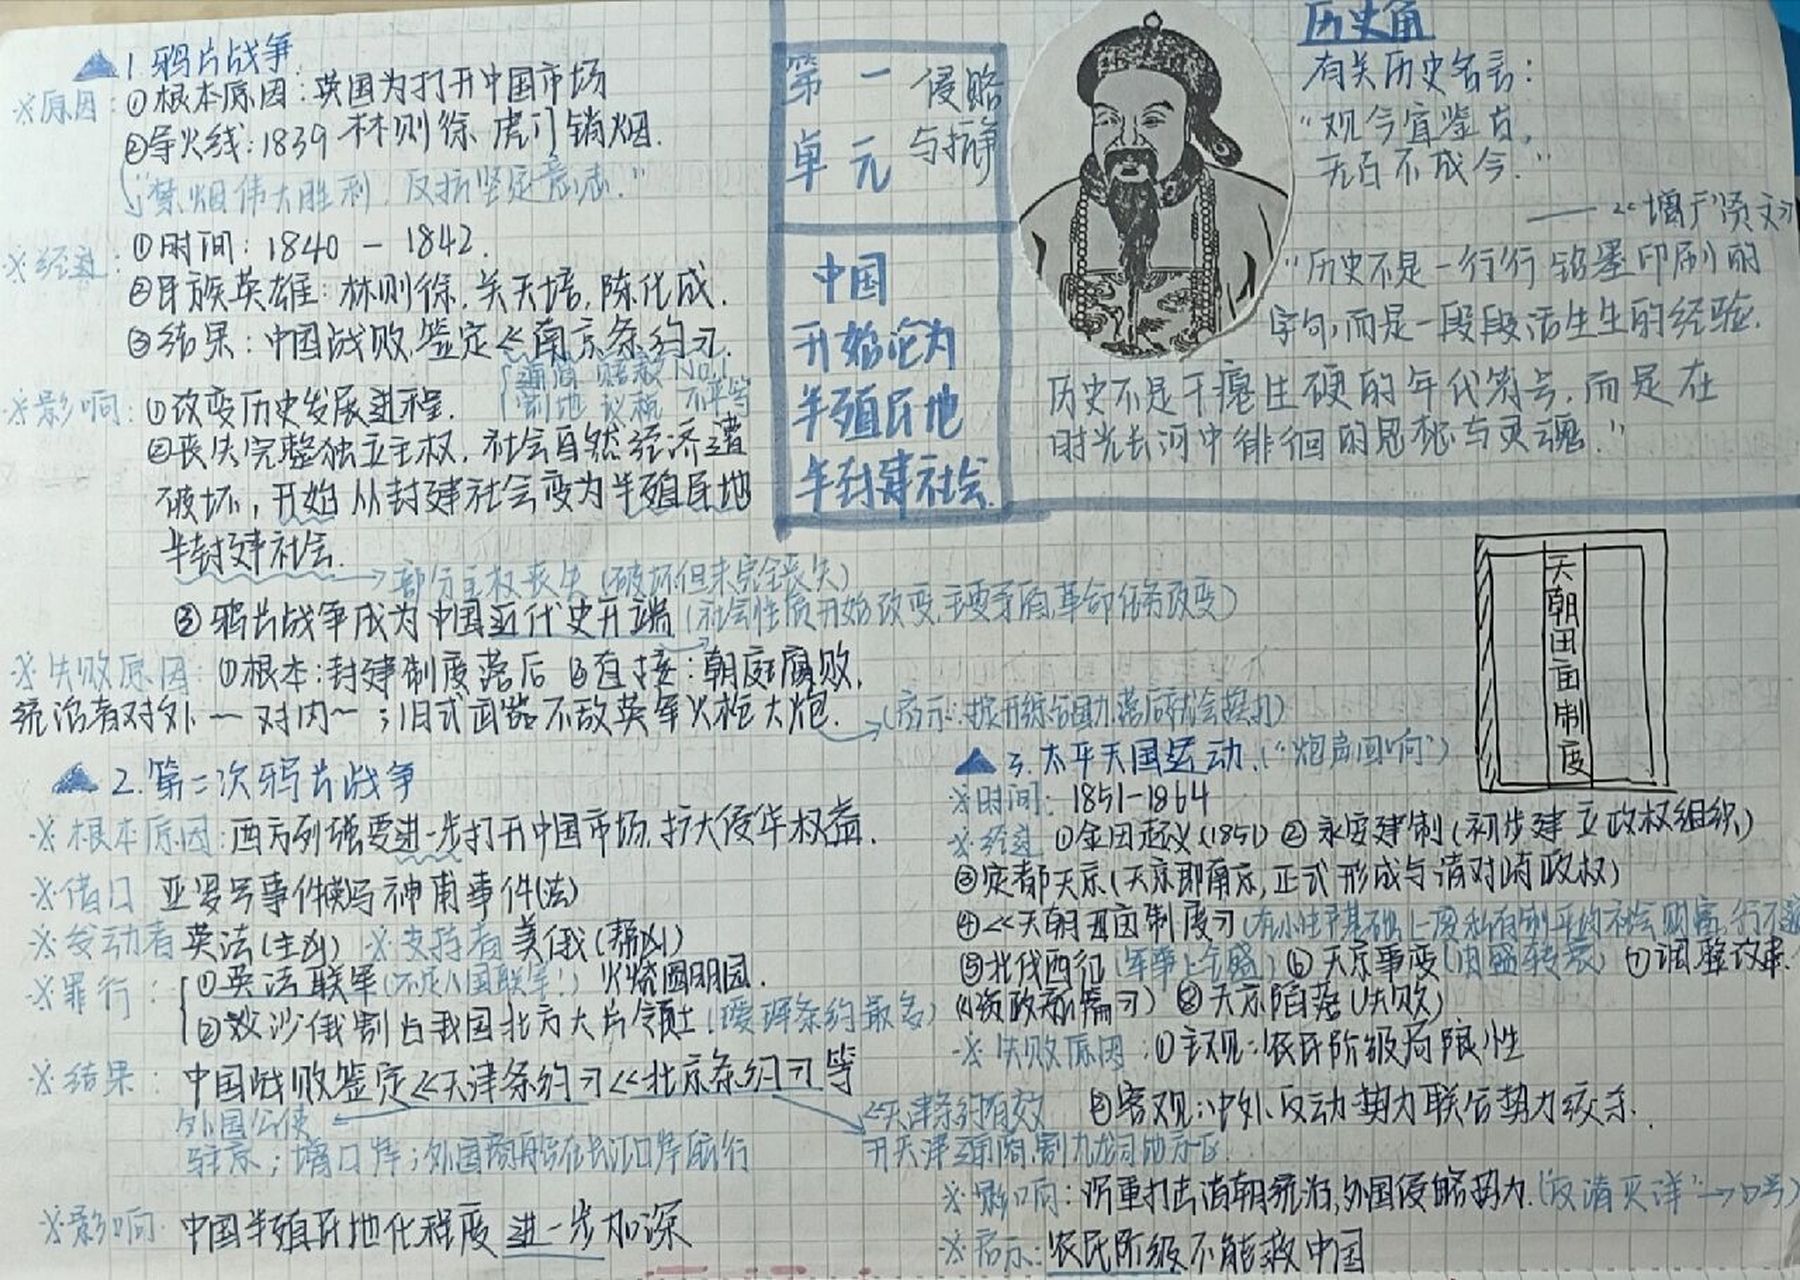 ▲1.鸦片战争
※原因:①根本原因:英国为打开中国市场
②导火线:1839 林则徐 虎门销烟.
"禁烟伟大胜利,反抗坚定意志."
※经过:①时间:1840-1842.
②民族英雄:林则徐,关天培,陈化成.
③结果:中国战败,签定《南京条约》.
通商 赔款 No.1
割地 议税 不平等
※影响:①改变历史发展进程.
②丧失完整独立主权,社会自然经济遭
破坏,开始从封建社会变为半殖民地
半封建社会.
→部分主权丧失(破坏但未完全丧失)
③鸦片战争成为中国近代史开端(社会性质开始改变,主要矛盾,革命任务改变)
※失败原因:①根本:封建制度落后 ②直接:朝庭腐败,
统治者对外~对内~;旧式武器不敌英军火枪大炮.
→(启示:提升综合国力,落后就会挨打)
▲2.第二次鸦片战争
※根本原因:西方列强要进一步打开中国市场,扩大侵华权益.
※借口 亚罗号事件 神甫事件(法)
※发动者 英法(主凶) ※支持者 美俄(帮凶)
※罪行:①英法联军(不是八国联军!)火烧圆明园.
②沙俄割占我国北方大片领土(瑷珲条约最多)
※结果:中国战败签定《天津条约》《北京条约》等
外国公使
驻京;增口岸;外国商船在长江口岸航行
《天津条约有效
开天津通商,割九龙司地方区
※影响 中国半殖民地化程度进一步加深
第一
单元
侵略
与抗争
中国
开始沦为
半殖民地
半封建社会
历史角
有关历史名言:
"观今宜鉴古,
无古不成今."
——《增广贤文》
"历史不是一行行铅墨印刷的
字句,而是一段段活生生的经验,
历史不是干瘪生硬的年代符号,而是在
时光长河中徘徊的思想与灵魂."
天朝田亩制度
▲3.太平天国运动.("炮声回响")
※时间:1851-1864
※经过 ①金田起义(1851) ②永安建制(初步建立政权组织)
③定都天京(天京即南京,正式形成与清对峙政权)
④《天朝田亩制度》(在小生产基础上废私有制平均社会财富,行不通
⑤北伐西征(军事上全盛) ⑥天京事变(由盛转衰) ⑦调整改革
(《资政新篇》) ⑧天京陷落(失败)
※失败原因:①主观:农民阶级局限性
②客观:中外反动势力联合势力绞杀.
※影响:沉重打击清朝统治,外国侵略势力.("反清灭洋"→口号)
※启示:农民阶级不能救中国